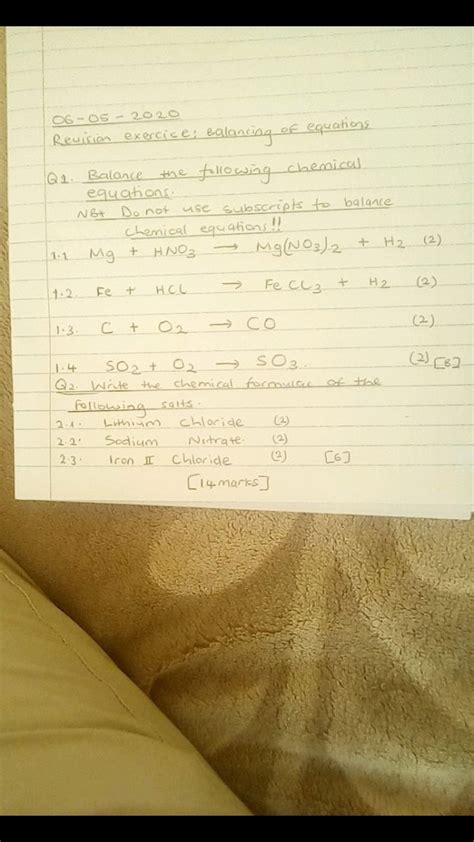 06-05-2020
Revision exercise: Balancing of equations
Q1. Balance the following chemical
equations.
NB* Do not use subscripts to balance
chemical equations!!
1.1 Mg + HNO3 → Mg(NO3)2 + H2 (2)
1.2. Fe + HCL → FeCL3 + H2 (2)
1.3. C + O2 → CO (2)
1.4 SO2 + O2 → SO3. (2) [8]
Q2. Write the chemical formulae of the
following salts.
2.1. Lithium Chloride (2)
2.2. Sodium Nitrate. (2)
2.3. Iron II Chloride (2) [6]
[14 marks]